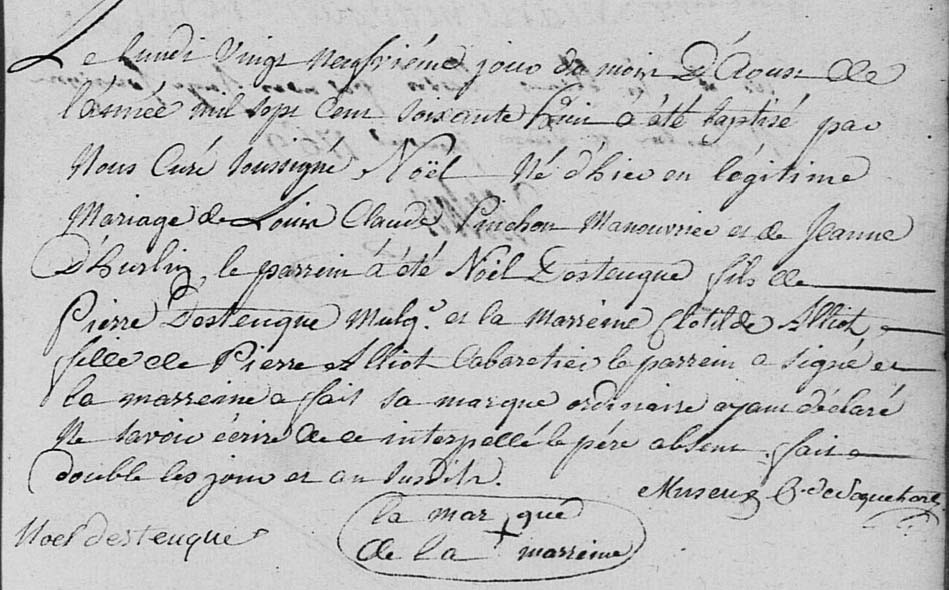 Le lundi vingt neufvième jour du mois D'Aoust de
l'année mil sept cent soixante huit a été baptisé par
Nous Curé soussigné, Noël Né d'hier en légitime
Mariage de Louis Claude Pinchon Manouvrier et de Jeanne
D'hurlin, le parrein a été Noël Desteuque fils de
Pierre Desteuque Mulq.r et la Marreine Clotilde Alliot
fille de Pierre Alliot Cabaretier le parrein a signé et
la marreine a fait sa marque ordinaire ayant déclaré
Ne savoir écrire de ce interpellé le pére absent. fait
double les jour et an susdits.
Museux C. de
Noel desteuque
la mar que
de la marreine